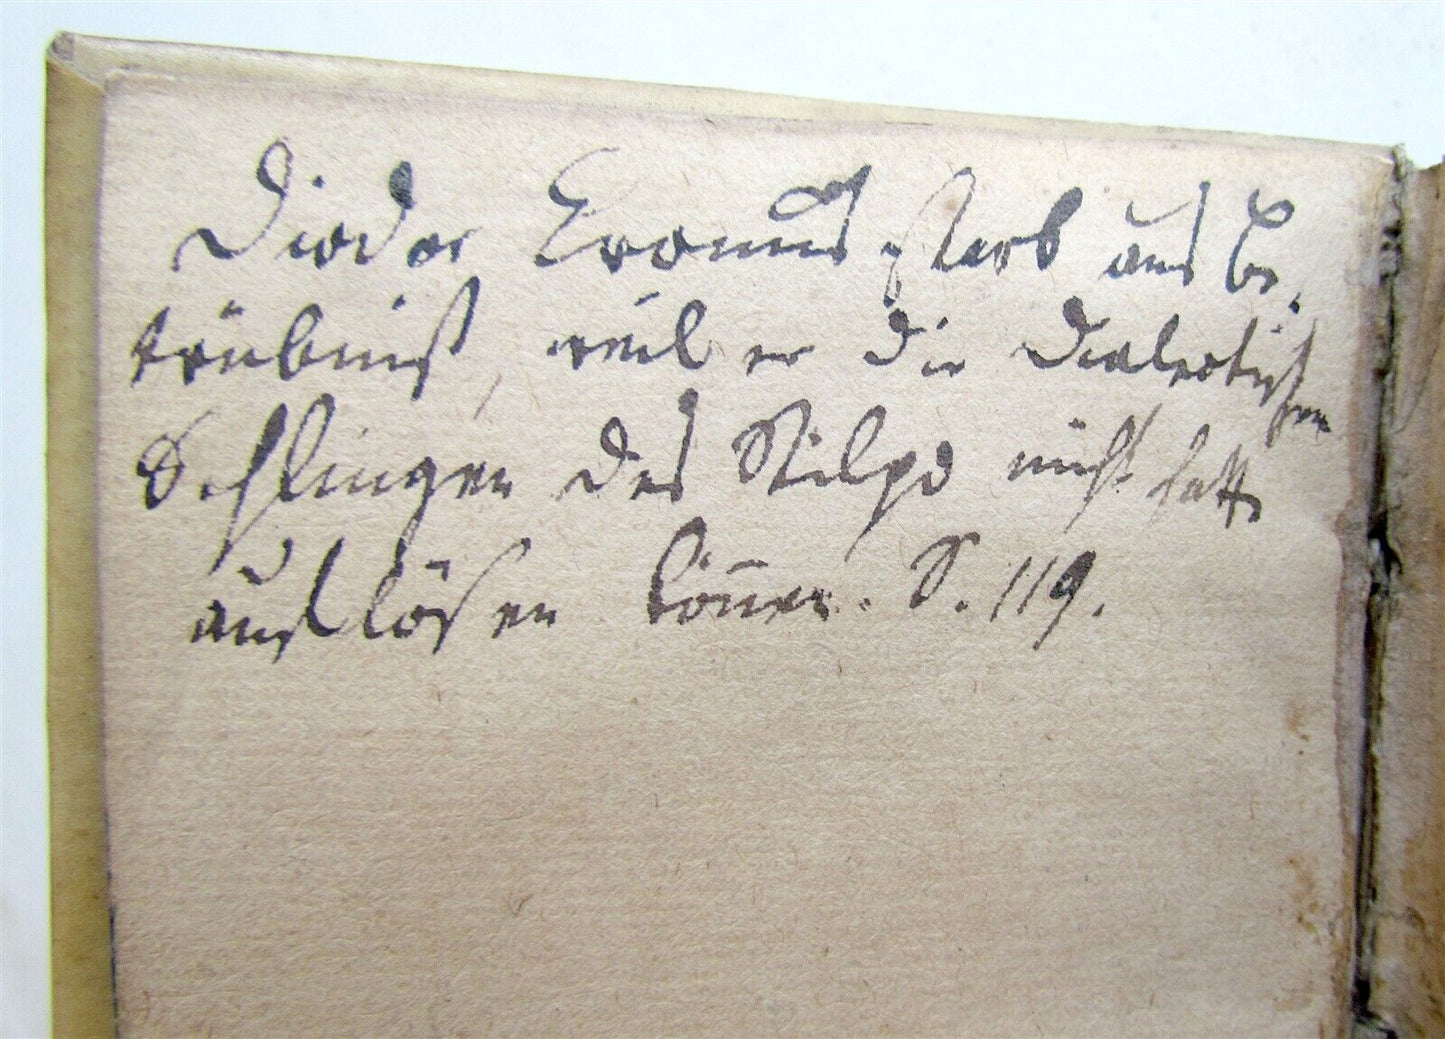 Diodor Cronus starb aus Be-
trübniß, weil er die Dialectischen
Schlingen des Stilpo nicht hatte
auflösen können. S. 119.